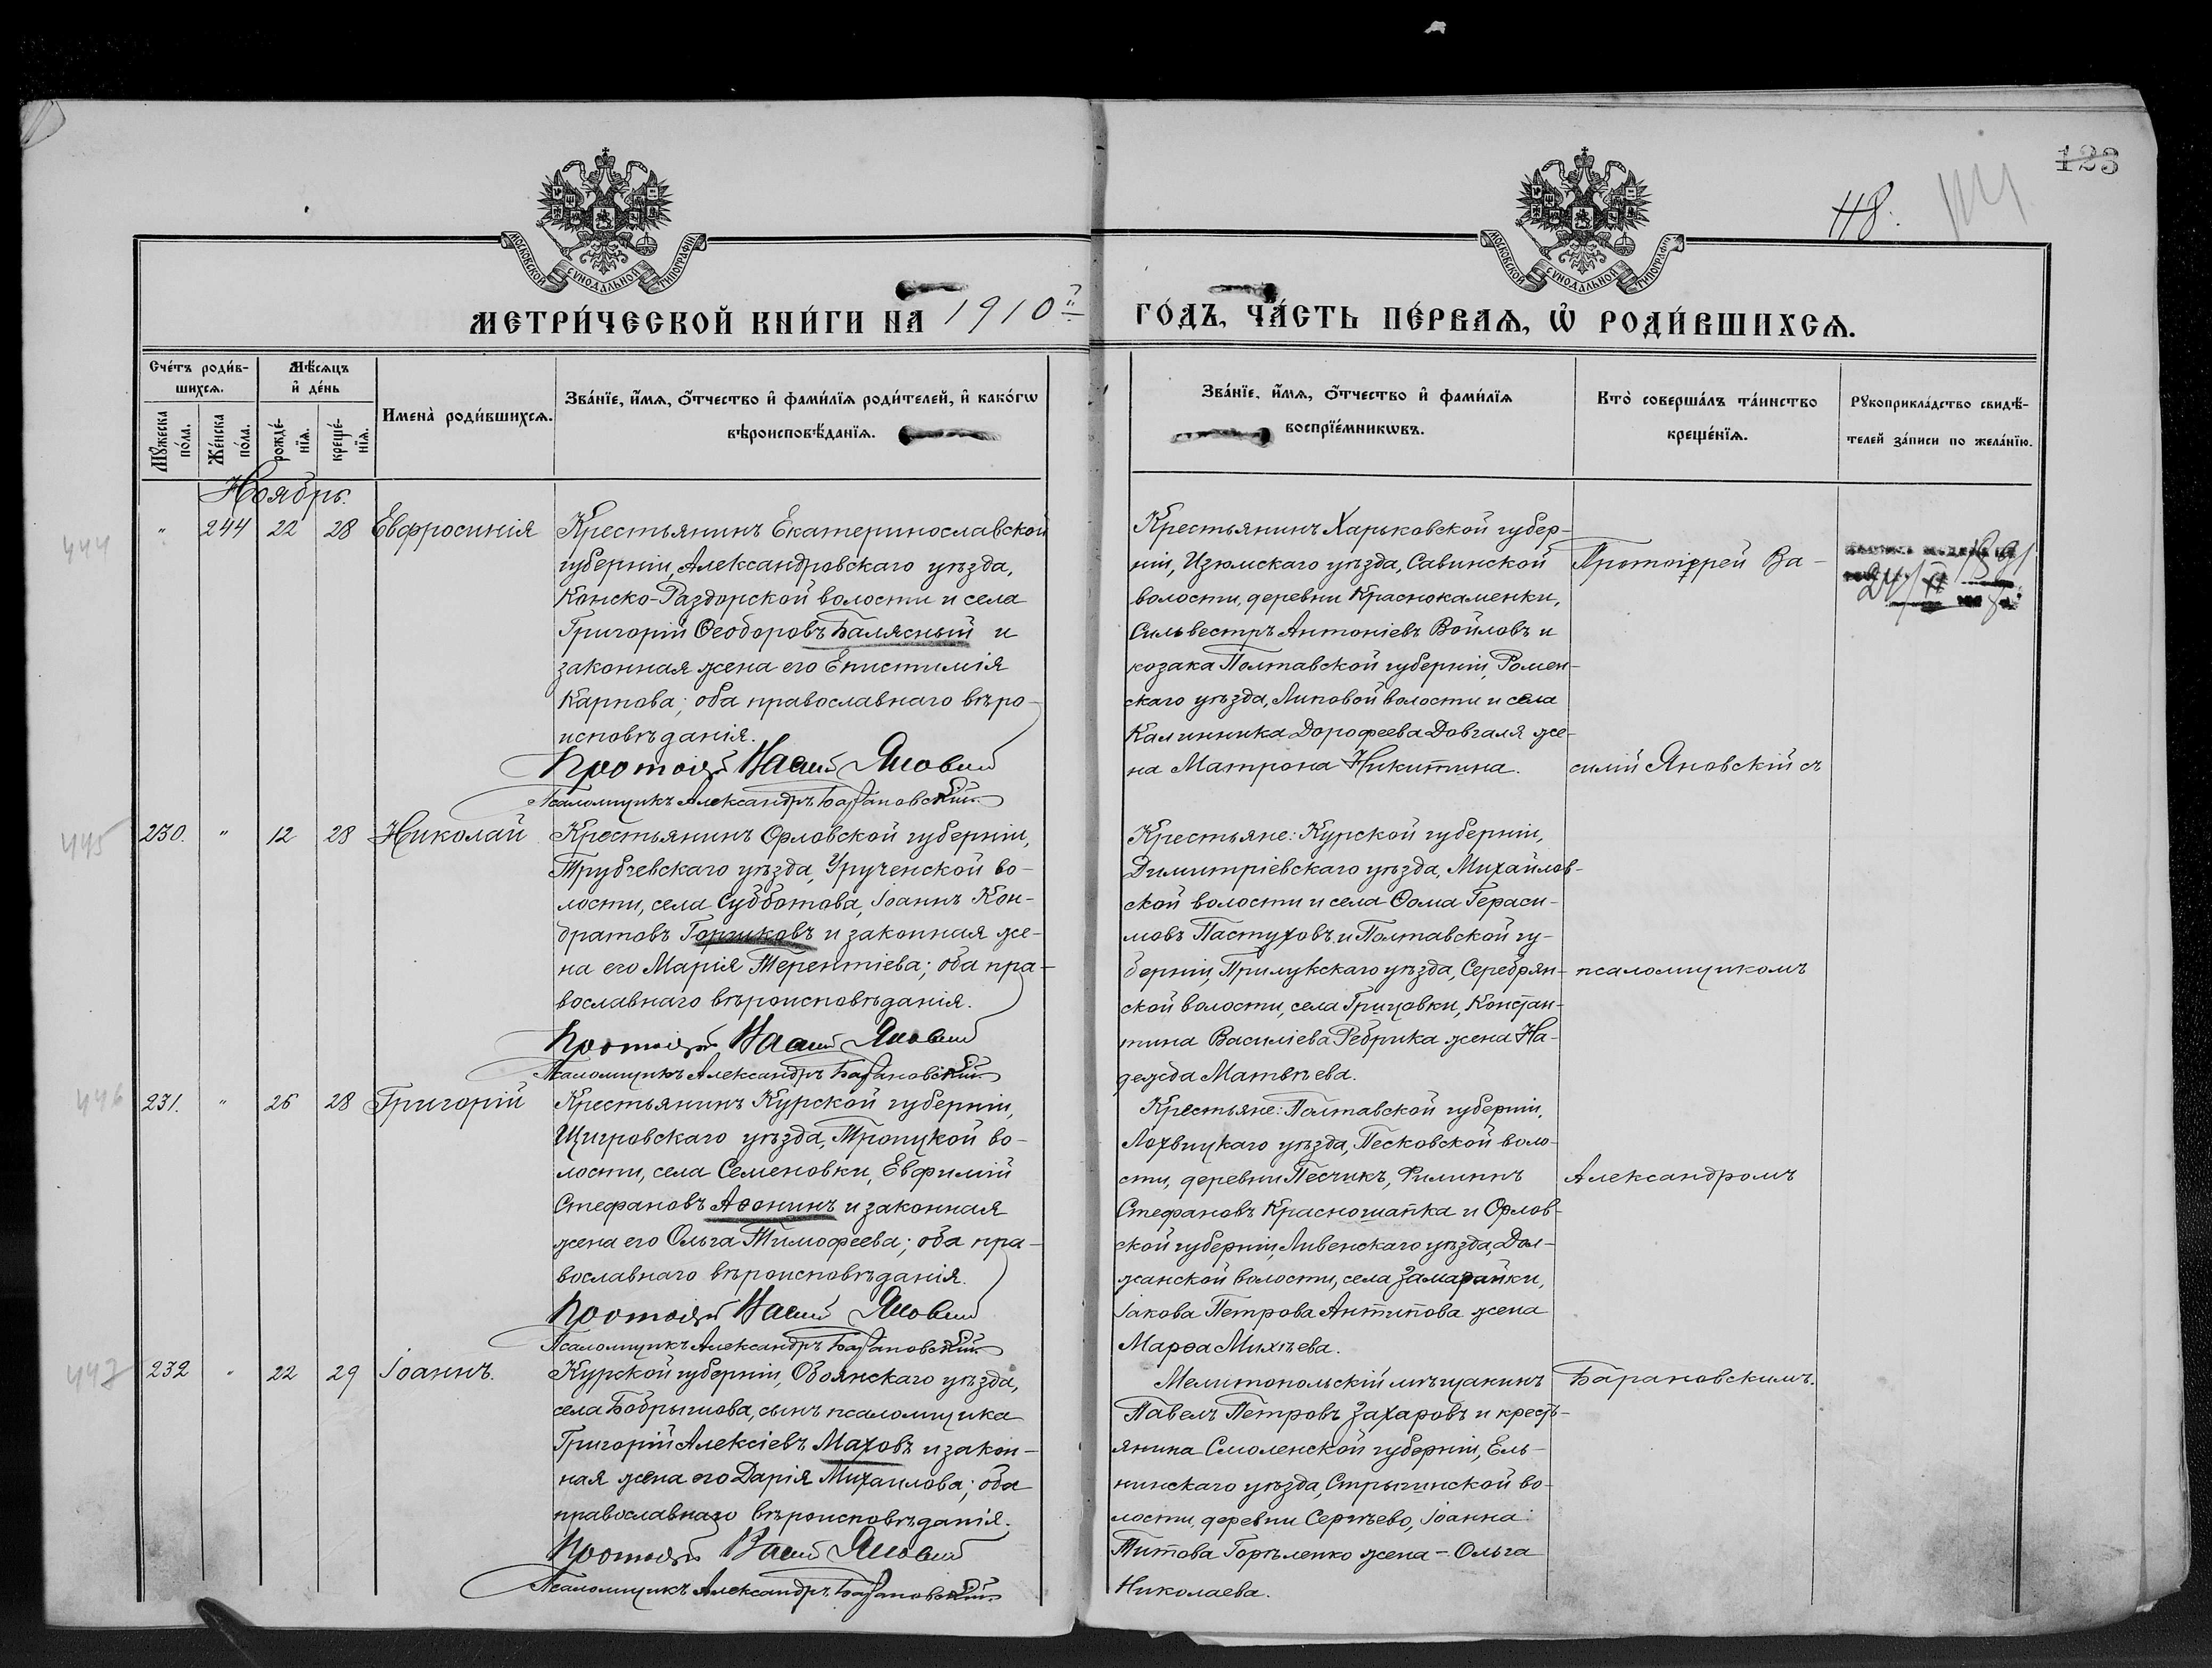 123
118.
МОСКОВСКОЙ СѴНОДАЛЬНОЙ ТИПОГРАФІИ
МОСКОВСКОЙ СѴНОДАЛЬНОЙ ТИПОГРАФІИ
МЕТРИ́ЧЕСКОЙ КНИ́ГИ НА 1910 й
ГО́ДЪ, ЧА́СТЬ ПЕ́РВАѦ, Ѡ҆ РОДИ́ВШИХСѦ.
Сче́тъ роди́в-
шихсѧ.
Мꙋ́жеска по́ла.
Же́нска по́ла.
Мѣ́сѧцъ
и҆ де́нь
рожде́-нїѧ.
креще́-нїѧ.
Имена̀ роди́вшихсѧ.
Зва́нїе, и҆́мѧ, ѻ҆́тчество и҆ фами́лїѧ роди́телей, и҆ како́гѡ
вѣроисповѣ́данїѧ.
Зва́нїе, и҆́мѧ, ѻ҆́тчество и҆ фами́лїѧ
воспрїе́мникѡвъ.
Кто̀ соверша́лъ та́инство
креще́нїѧ.
Рꙋкоприкла́дство свидѣ́-
телей за́писи по жела́нїю.
Ноябрь.
444
" 244 22 28 Евфросинія
Крестьянинъ Екатеринославской
губерніи, Александровскаго уѣзда,
Конско-Раздорской волости и села
Григорій Ѳеодоровъ Балясный и
законная жена его Епистимія
Карпова; оба православнаго вѣро-
исповѣданія.
Протоіерей Василій Яновскій
Псаломщикъ Александръ Барановскій
Крестьянинъ Харьковской губер-
ніи, Изюмскаго уѣзда, Савинской
волости, деревни Краснокаменки,
Сильвестръ Антоніевъ Войловъ и
козака Полтавской губерніи, Ромен-
скаго уѣзда, Липовой волости и села
Калинника Дорофеева Довгаля же-
на Матрона Никитина.
Протоіерей Ва-
силій Яновскій съ
445
230. " 12 28 Николай
Крестьянинъ Орловской губерніи,
Трубчевскаго уѣзда, Урученской во-
лости, села Субботова, Іоаннъ Кон-
дратовъ Горшковъ и законная же-
на его Марія Терентіева; оба пра-
вославнаго вѣроисповѣданія.
Протоіерей Василій Яновскій
Псаломщикъ Александръ Барановскій
Крестьяне: Курской губерніи,
Димитріевскаго уѣзда, Михайлов-
ской волости и села Ѳома Гераси-
мовъ Пастуховъ и Полтавской гу-
берніи, Прилукскаго уѣзда, Серебрян-
ской волости, села Грицовки, Констан-
тина Василіева Ребрика жена На-
дежда Матвѣева.
псаломщикомъ
446
231. " 26 28 Григорій
Крестьянинъ Курской губерніи,
Щигровскаго уѣзда, Троицкой во-
лости, села Семеновки, Евфимій
Стефановъ Аѳонинъ и законная
жена его Ольга Тимофеева; оба пра-
вославнаго вѣроисповѣданія.
Протоіерей Василій Яновскій
Псаломщикъ Александръ Барановскій
Крестьяне: Полтавской губерніи,
Лохвицкаго уѣзда, Песковской воло-
сти, деревни Песчикъ, Филиппъ
Стефановъ Красношапка и Орлов-
ской губерніи, Ливенскаго уѣзда, Дол-
жанской волости, села Замарайки,
Іакова Петрова Антипова жена
Марѳа Михѣева.
Александромъ
447
232 " 22 29 Іоаннъ.
Курской губерніи, Обоянскаго уѣзда,
села Бобрышова, сынъ псаломщика
Григорій Алексіевъ Маховъ и закон-
ная жена его Дарія Михаилова; оба
православнаго вѣроисповѣданія.
Протоіерей Василій Яновскій
Псаломщикъ Александръ Барановскій
Мелитопольскій мѣщанинъ
Павелъ Петровъ Захаровъ и кресть-
янина Смоленской губерніи, Ель-
нинскаго уѣзда, Стрыгинской во-
лости, деревни Сергѣево, Іоанна
Титова Горѣленко жена - Ольга
Николаева.
Барановскимъ.